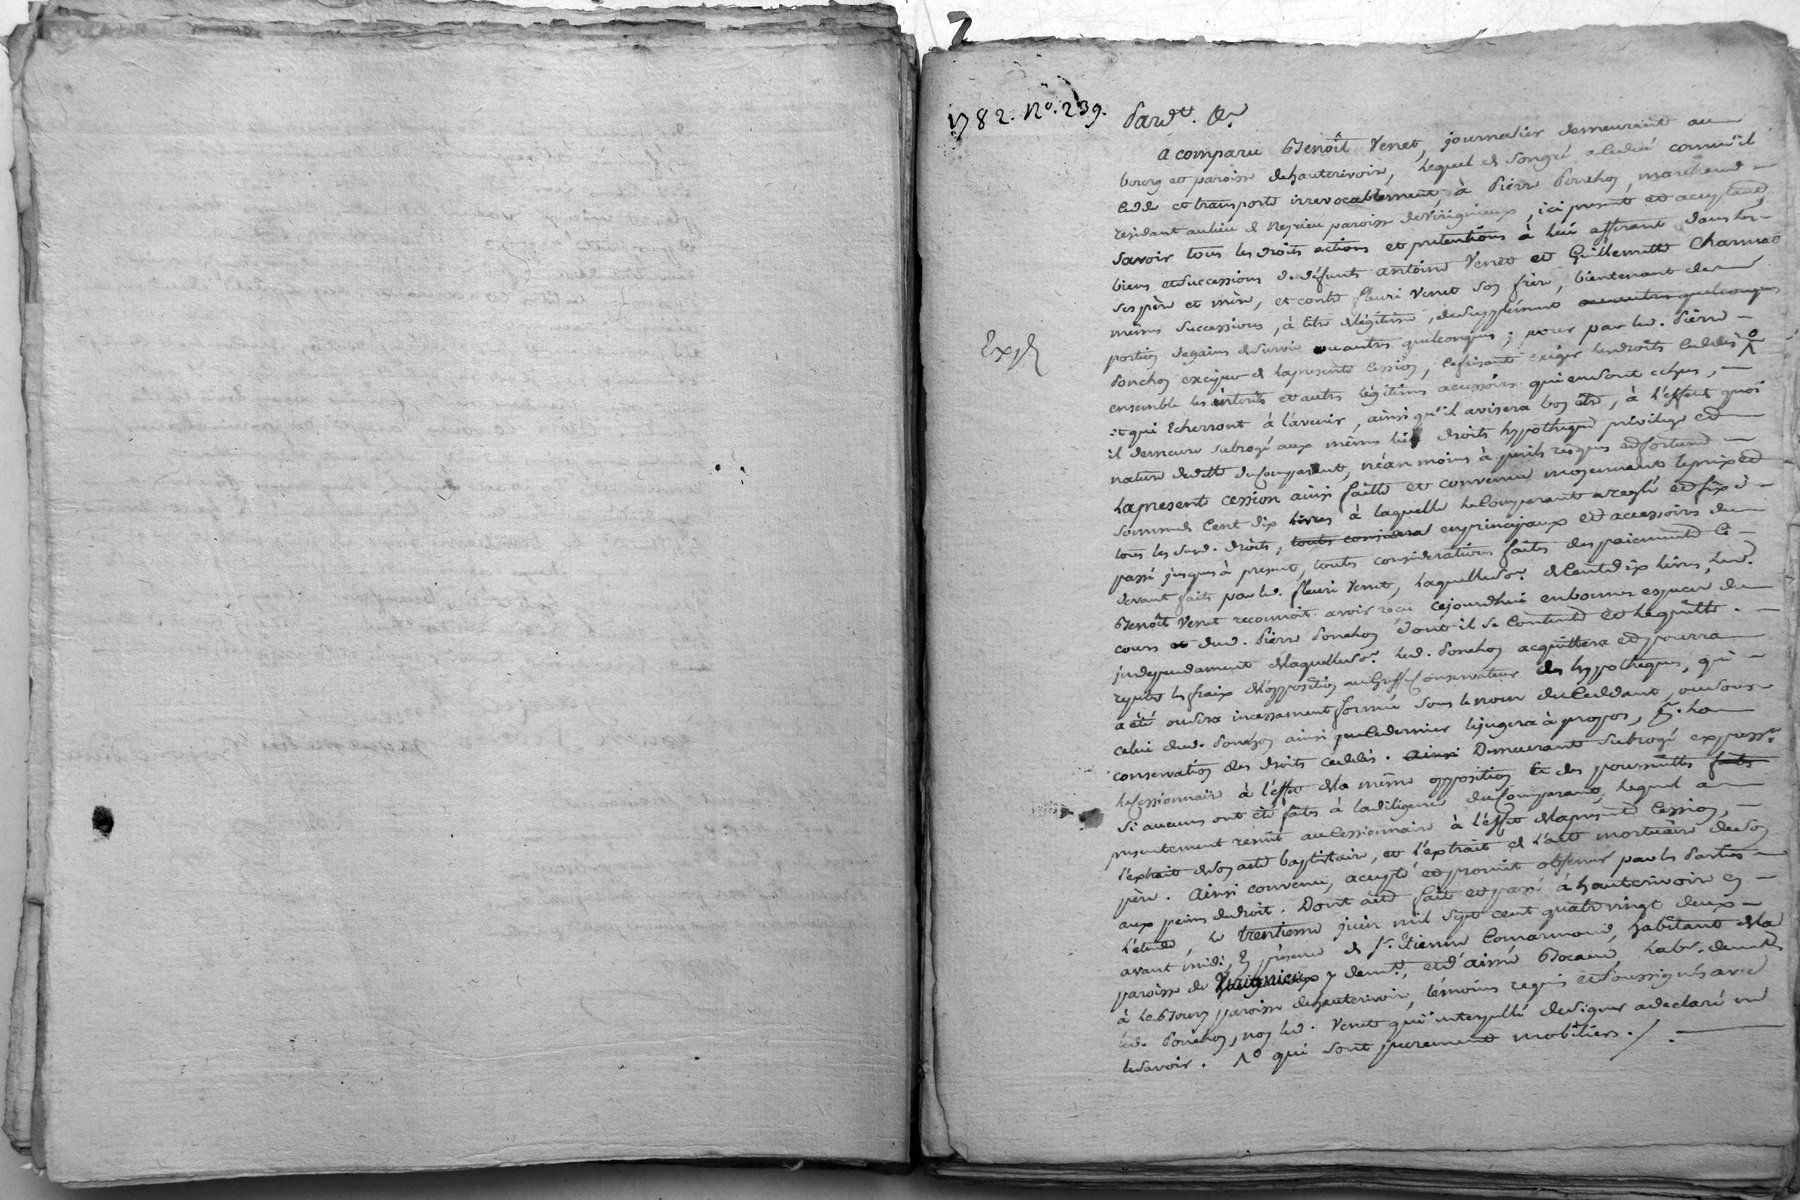 7
1782. No. 239.
Pardt. &c.
a comparu Benoît Venet, journalier demeurant au
bourg et paroisse dehauterivoire, lequel de songré a cedé comm'il
cede et transporte irrevocablement, à Pierre Ponchon, marchand
residant aulieu de paroisse deVirignieux, ici present et acceptant
savoir tous les droits actions et pretentions à lui afferant dans les
biens et successions de défunts antoine Venet et Guillemette Charmet
ses père et mère, et contre fleuri Venet son frère, bientenant de
mêmes successions, à titre delégitime, desupplément ou autres quelconques
portion degains desurvie ou autres quelconques; pour par led. Pierre
Expé
Ponchon de lapresente cession, exiger lesdroits cedés
ensemble les interêts et autres légitimes accessoirs qui ensont echus,
et qui écherront à l'avenir, ainsi qu'il avisera bon être, à l'effet quoi
il demeure subrogé aux mêmes droits hypotheque privilege et
nature dedette du comparant, néanmoins à perils risques et fortune
lapresente cession ainsi faitte et convenue moyennant leprix et
somme de cent dix livres à laquelle lecomparant a reglé et fixé
tous les susd. droits, touts considera enprincipaux et accessoirs du
passé jusques à present, toutes considerations faites des paiements ci-
devant faits par led. fleuri Venet, laquelle so.e decentdix livres, led.
Benoît Venet reconnoit avoir reçu cejourdhui enbonnes especes du
cours et dud. Pierre Ponchon dont il se contente et lequitte.
independament delaquelle so.e led. Ponchon acquittera et pourra
repeter les fraix del'opposition au Greffe Conservateur des hypotheques, qui
a été ou sera incessament formée sous le nom ducedant, ou sous
celui dud. Ponchon ainsi que cedernier lejugera à propos, pr. la
conservation des droits cedés. Ainsi Demeurant subrogé expresst.
lecessionnaire à l'effet dela même opposition et des poursuittes faites
si aucunes ont été faites à la diligence du comparant, lequel a
presentement remit aucessionnaire à l'effet delapresente cession,
l'extrait deson acte baptistaire, et l'extrait de l'acte mortuaire deson
père. Ainsi convenu, accepté et promit observer par les Parties
aux peines dedroit. Dont acte fait et passé à hauterivoire en
l'etude, le trentieme juin mil sept cent quatre vingt deux
avant midi, en présence de Sr. Etienne Comarmond, habitant dela
paroisse de Virignieux y demt. et d'aimé Bocaud, labr. demt.
à paroisse dehauterivoire, témoins requis et soussignés avec
led. Ponchon, non led. Venet qui interpellé designer adeclaré ne
lesavoir. qui sont purement mobiliers./.